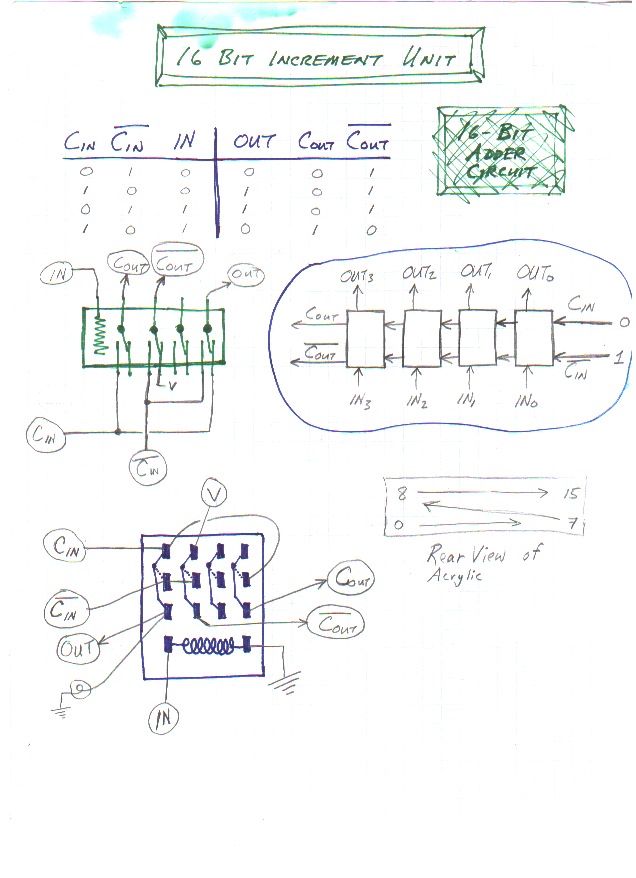 16 BIT INCREMENT UNIT
16-BIT
ADDER
CIRCUIT
CIN C̅I̅N̅ IN OUT COUT C̅O̅U̅T̅
0 1 0 0 0 1
1 0 0 1 0 1
0 1 1 1 0 1
1 0 1 0 1 0
IN COUT C̅O̅U̅T̅ OUT
V
CIN
C̅I̅N̅
OUT3 OUT2 OUT1 OUT0
COUT CIN 0
C̅O̅U̅T̅ C̅I̅N̅ 1
IN3 IN2 IN1 IN0
8 15
0 7
Rear View of
Acrylic
V
CIN
C̅I̅N̅ COUT
OUT C̅O̅U̅T̅
IN